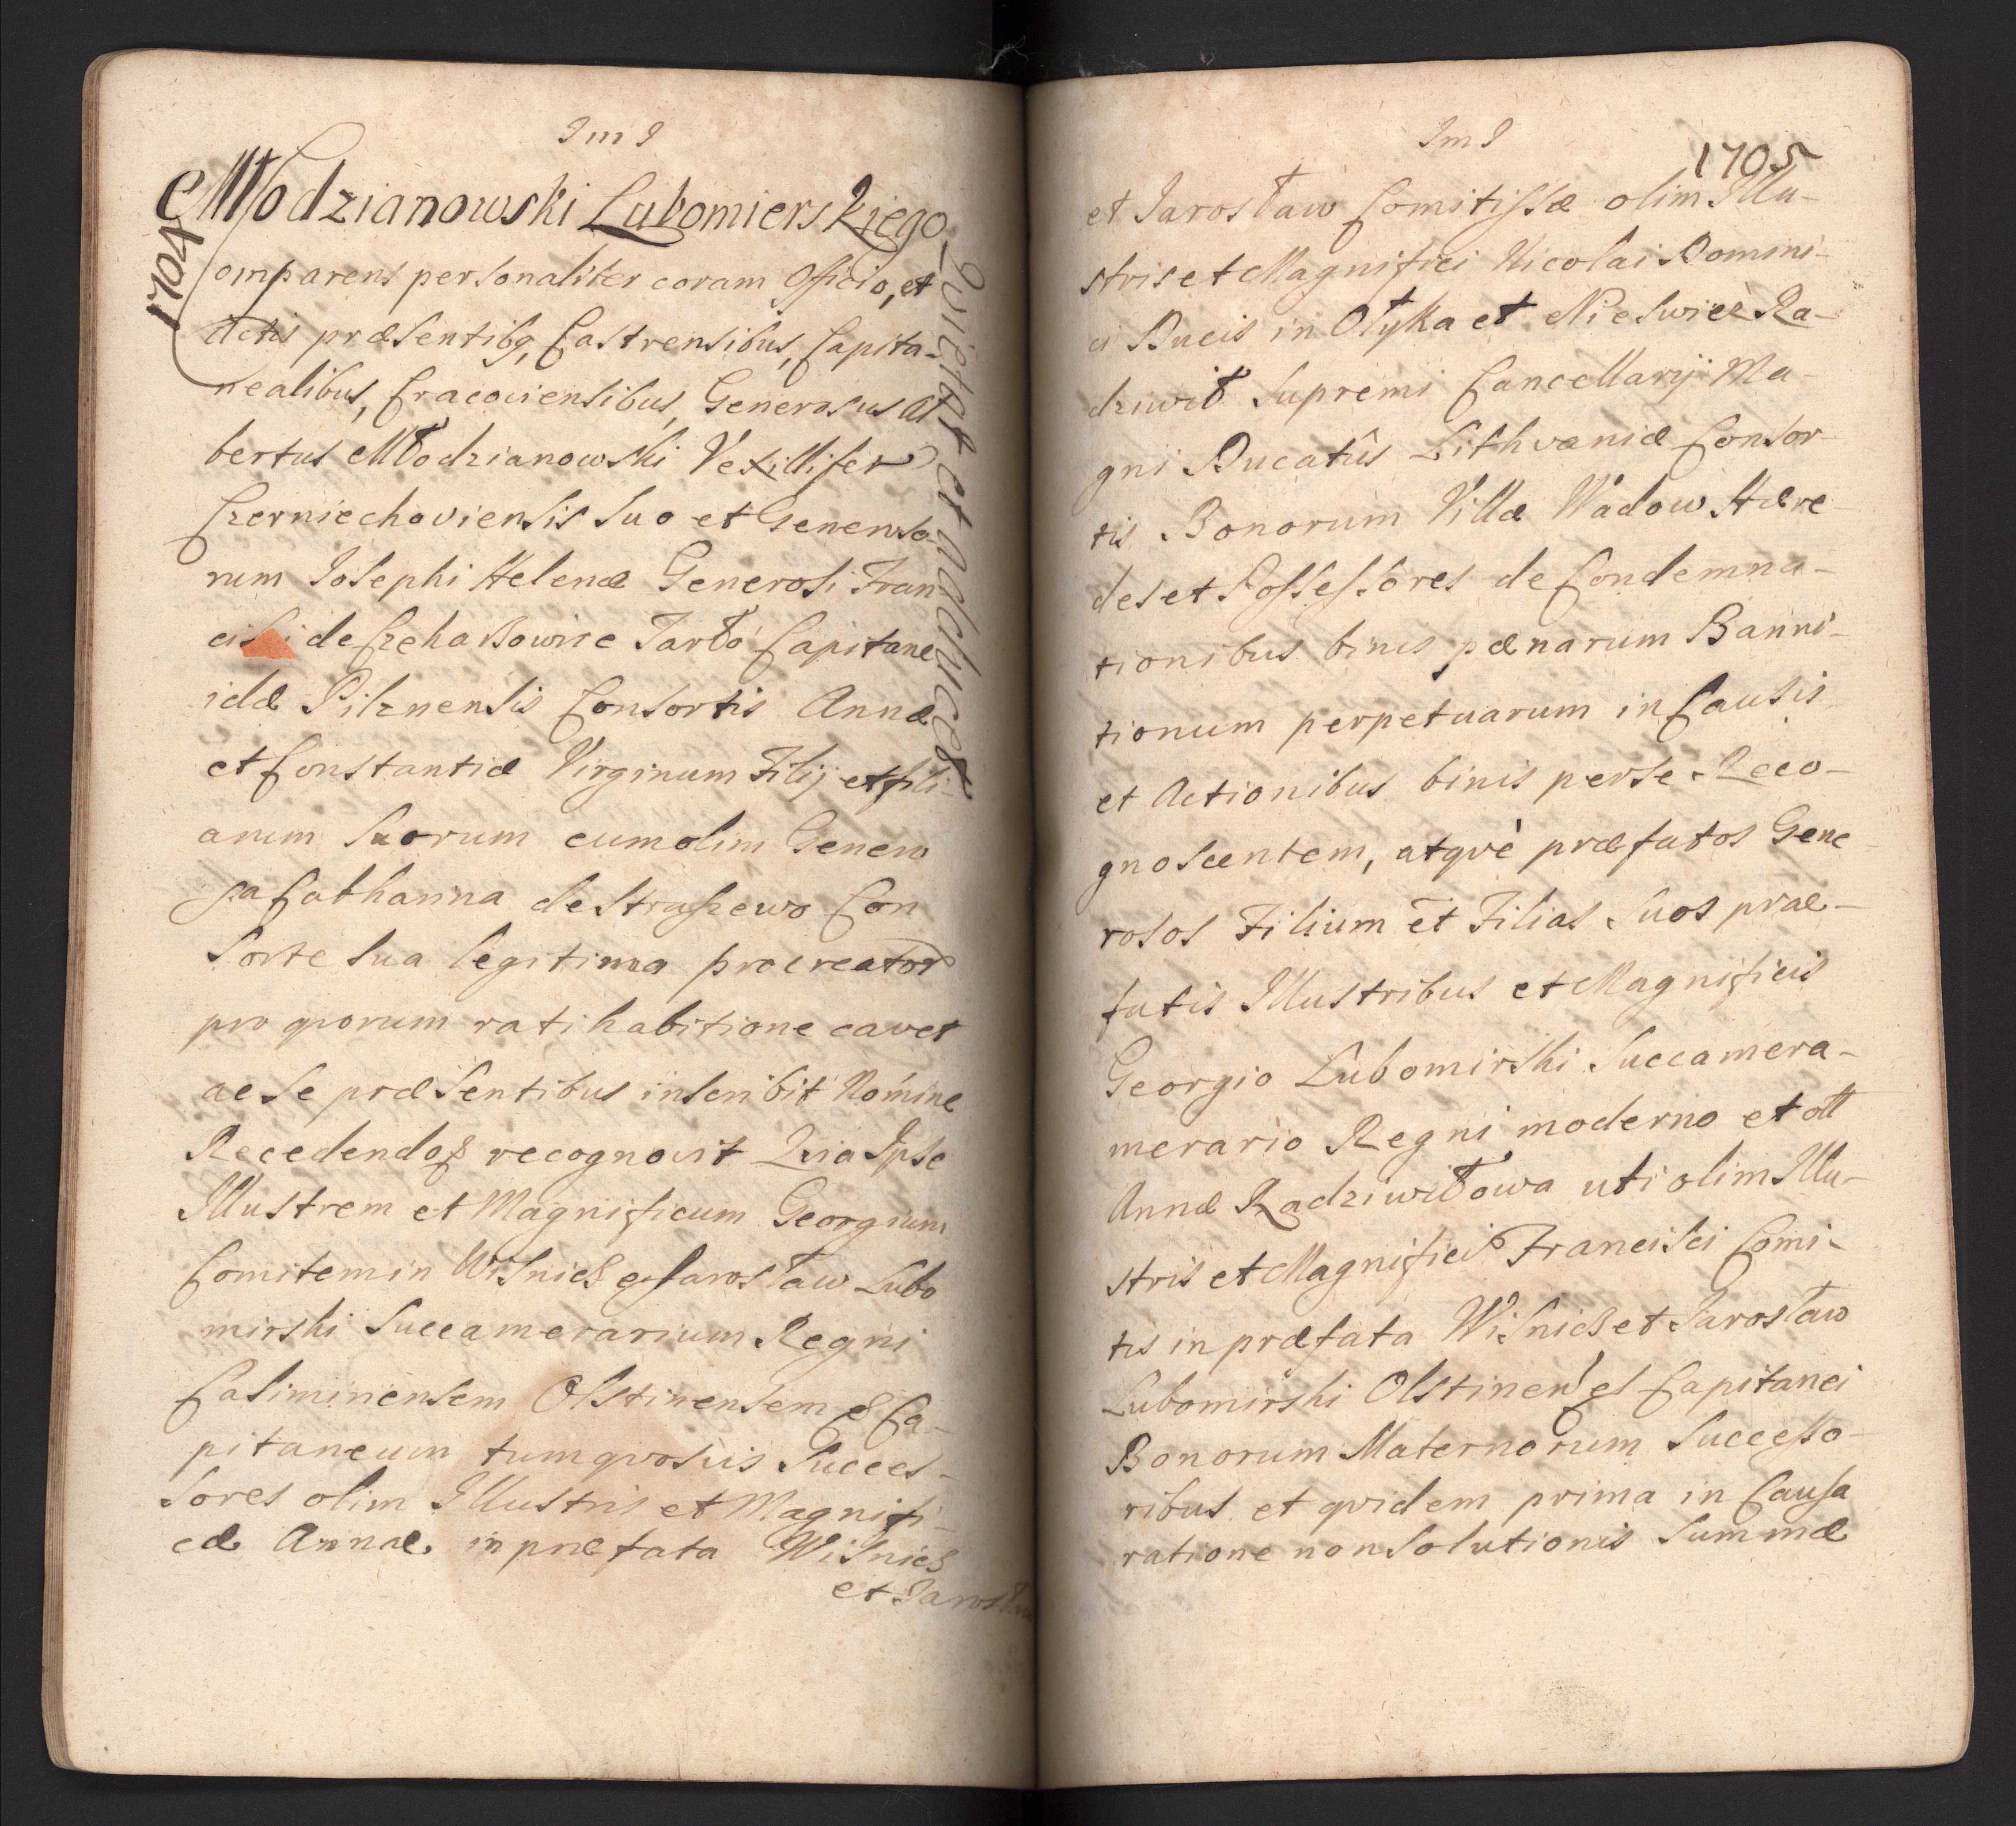 ImI
Młodzianowski Lubomierskiego
Quietat et adducet
1704
Comparens personaliter coram Officio, et
Actis præsentibg, Castrensibus, Capita-
nealibus, Cracoviensibus, Generosus Al
bertus Młodzianowski Vexillifer
Czerniechoviensis suo et Generoso
rum Josephi Helenæ Generosi Fran
cisci de Czekarzowice Tarło Capitane
idæ Pilznensis Consortis Annæ
et Constantiæ Virginum Filij et fili-
arum suorum cum olim Genero
sa Catharina de Straszewo Con
sorte sua legitima procreator
pro qvorum ratihabitione cavet
ac se præsentibus inscribit Nomine
Recedendo & recognovit Quia Ipse
Illustrem et Magnificum Georgium
Comitem in Wisnicz et Jarosław Lubo
mirski Succamerarium Regni
Casiminensem Olstinensem & Ca-
pitaneum tumqvosvis Succes-
sores olim Illustris et Magnifi-
cæ Annæ in præfata Wisnicz
et Jarosław
ImI
1705
et Jarosław Comitissæ olim Illu-
stris et Magnifici Nicolai Domini-
ci Ducis in Ołyka et Nieswiez Ra-
dziwił Supremi Cancellarij Ma-
gni Ducatûs Lithvaniæ Consor-
tis Bonorum Villæ Wadow Hære-
des et Possessores de Condemna-
tionibus binis pænarum Banni-
tionum perpetuarum in Causis
et Actionibus binis per se Reco-
gnoscentem, atqvè præfatos Gene
rosos Filium et Filias suos præ-
fatis Illustribus et Magnificis
Georgio Lubomirski Succamera-
merario Regni moderno et olt
Annæ Radziwiłowa uti olim Illu-
stris et Magnifici Francisci Comi-
tis in præfata Wisnicz et Jarosław
Lubomirski Olstinen & Capitanei
Bonorum Maternorum Successo-
ribus et qvidem prima in Causa
ratione non Solutionis Summæ